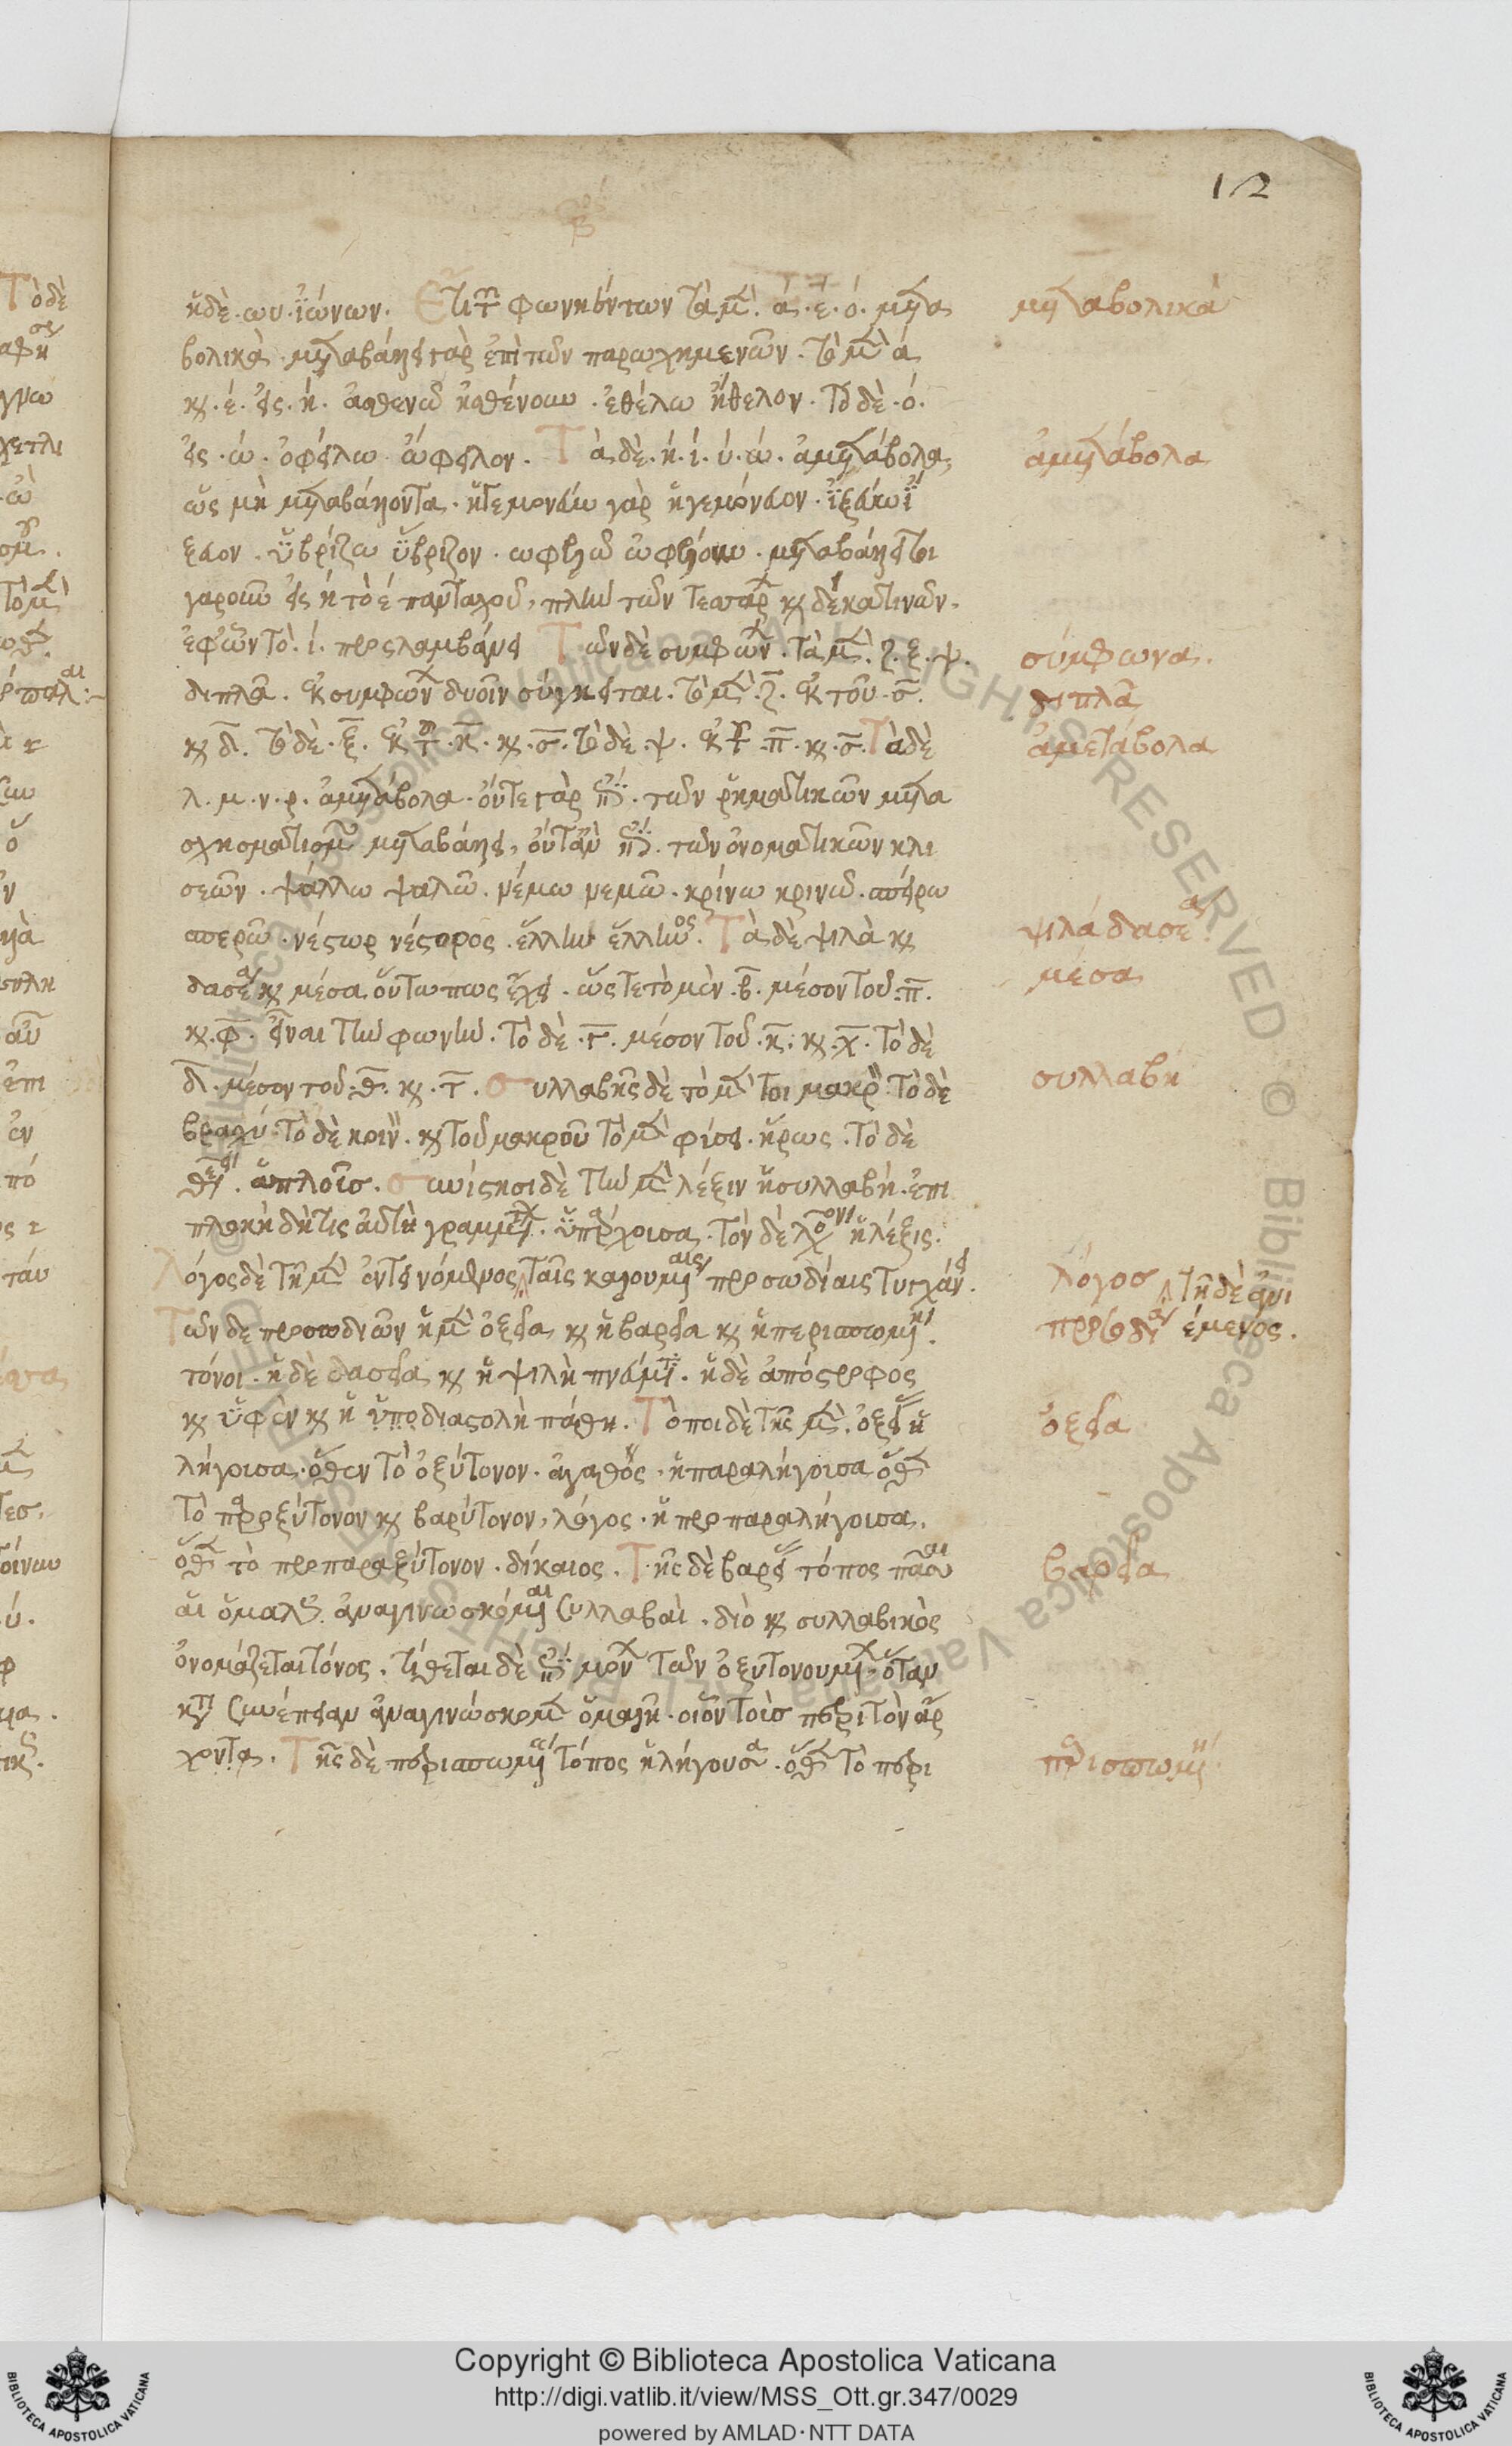 12
ἡ δὲ . ωυ . ἰώνων . Ἔτι τῶν φωνηέντων τὰ μὲν . ά . έ . ό . μετα
βολικὰ . μεταβάλλει γὰρ ἐπὶ τῶν παρωχημενῶν . τὸ μὲν ά
καὶ . έ . εἰς . ή . ἀσθενῶ ἠσθένουν . ἐθέλω ἤθελον . Τὸ δὲ . ό .
εἰς . ώ . ὀφείλω ὤφειλον . Τὰ δὲ . ή . ί . ύ . ώ . ἀμετάβολα,
ὡς μὴ μεταβάλλοντα . ἡγεμονεύω γὰρ ἡγεμόνευον . ἰξεύω ἴ
ξευον . ὑβρίζω ὕβριζον . ωφελῶ ὠφέλουν . μεταβάλλεται
γαροῦν εἰς ή τὸ έ πανταχοῦ, πλὴν τῶν τεσσάρων καὶ δέκα τινῶν .
ἐφ' ὧν τὸ . ί . προσλαμβάνει Τῶν δὲ συμφώνων . τὰ μὲν . ζ . ξ . ψ .
διπλᾶ . ἐκ συμφώνων δυοῖν σύγκειται . τὸ μὲν . ζ . ἐκ τοῦ . σ .
καὶ δ . τὸ δὲ . ξ . ἐκ τοῦ . κ . καὶ . σ . τὸ δὲ . ψ . ἐκ τοῦ . π . καὶ . σ . Τὰ δὲ
λ . μ . ν . ρ . ἀμετάβολα . οὔτε γὰρ ἐπὶ . τῶν ῥηματικῶν μετα
σχηματισμῶν μεταβάλλει, οὔτ' αὖ ἐπὶ . τῶν ὀνοματικῶν κλι
σεῶν . ψάλλω ψαλῶ . νέμω νεμῶ . κρίνω κρινῶ . σπείρω
σπερῶ . νέστωρ νέστορος . ἕλλην ἕλληνος . Τὰ δὲ ψιλὰ καὶ
δασέα καὶ μέσα οὕτω πως ἔχει . ὥστε τὸ μὲν . β . μέσον τοῦ . π .
καὶ . φ . εἶναι τὴν φωνὴν . Τὸ δὲ . γ . μέσον τοῦ . κ . καὶ . χ . Τὸ δὲ
δ . μέσον τοῦ . θ . καὶ . τ . Συλλαβῆς δὲ τὸ μέν τοι μακρὸν . Τὸ δὲ
βραχύ . Τὸ δὲ κοινὸν . καὶ τοῦ μακροῦ τὸ μὲν φύσει . ἥρως . Τὸ δὲ
θέσει . ἄπλοις . συνίστησι δὲ τὴν μὲν λέξιν ἡ συλλαβή . ἐπι
πλοκὴ δή τις αὐτὴ γραμμάτων . ὑπάρχουσα . Τὸν δὲ λόγον ἡ λέξις .
Λόγος δὲ τῇ μὲν ἐντεινόμενος ταῖς καλουμέναις προσωδίαις τυγχάνει .
Τῶν δὲ προσωδιῶν ἡ μὲν ὀξεῖα καὶ ἡ βαρεῖα καὶ ἡ περισπωμένη .
τόνοι . ἡ δὲ δασεῖα καὶ ἡ ψιλὴ πνεύματα . ἡ δὲ ἀπόστροφος
καὶ ὑφὲν καὶ ἡ ὑποδιαστολὴ πάθη . Τόποι δὲ τῆς μὲν . ὀξείας ἡ
λήγουσα . ὅθεν τὸ ὀξύτονον . ἀγαθός . ἡ παραλήγουσα ὅθεν
Τὸ παροξύτονον καὶ βαρύτονον, λόγος . ἡ προπαραλήγουσα .
ὅθεν τὸ προπαροξύτονον . δίκαιος . Τῆς δὲ βαρείας τόπος πᾶσαι
αἱ ὁμαλῶς ἀναγινωσκόμεναι συλλαβαὶ . διὸ καὶ συλλαβικὸς
ὀνομάζεται τόνος . τίθεται δὲ ἐπὶ μόνων τῶν ὀξυτονουμένων . ὅταν
κατὰ συνέπειαν ἀναγινώσκομεν ὁμαλῇ . οἷον τοὶς περὶ τὸν ἄρ
χοντα . Τῆς δὲ περισπωμένης τόπος ἡ λήγουσα . ὅθεν τὸ περι
μεταβολικὰ
ἀμετάβολα
σύμφωνα .
διπλᾶ
ἀμετάβολα
ψιλὰ δασέα
μέσα
συλλαβὴ
λόγος
τῇ δὲ ἀνι
έμενος .
προσωδίαι
ὀξεῖα
βαρεῖα
περισπωμένη
Copyright © Biblioteca Apostolica Vaticana
http://digi.vatlib.it/view/MSS_Ott.gr.347/0029
powered by AMLAD · NTT DATA
BIBLIOTECA APOSTOLICA VATICANA
BIBLIOTECA APOSTOLICA VATICANA